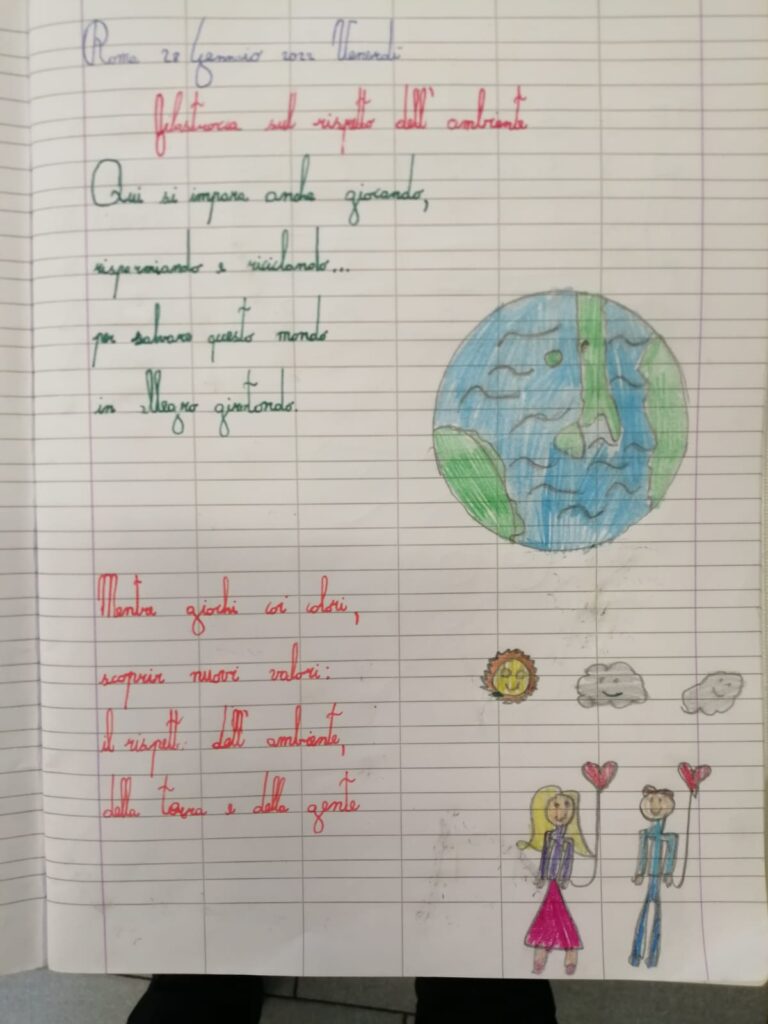 Roma 28 Gennaio 2022 Venerdì
filastrocca sul rispetto dell'ambiente
Qui si impara anche giocando,
risparmiando e riciclando...
per salvare questo mondo
in allegro girotondo.
Mentre giochi coi colori,
scoprir nuovi valori:
il rispetto dell'ambiente,
della terra e della gente